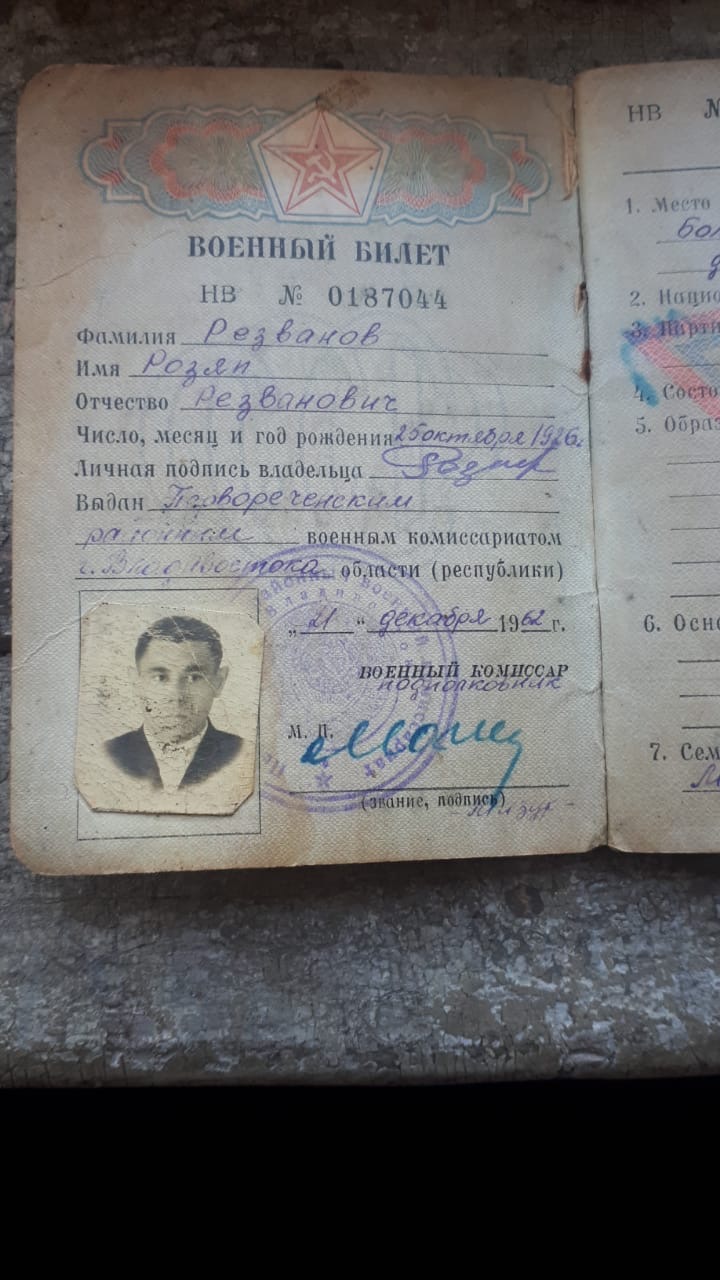 ВОЕННЫЙ БИЛЕТ
НВ № 0187044
Фамилия Резванов
Имя Розяп
Отчество Резванович
Число, месяц и год рождения 25 октября 1926г.
Личная подпись владельца
Выдан Первореченским
районным военным комиссариатом
г. Владивостока области (республики)
„21“ декабря 1962 г.
ВОЕННЫЙ КОМИССАР
подполковник
М. П.
(звание, подпись)
НВ №
1. Место
2. Нацио
3. Парти
4. Состо
5. Образ
6. Осно
7. Сем